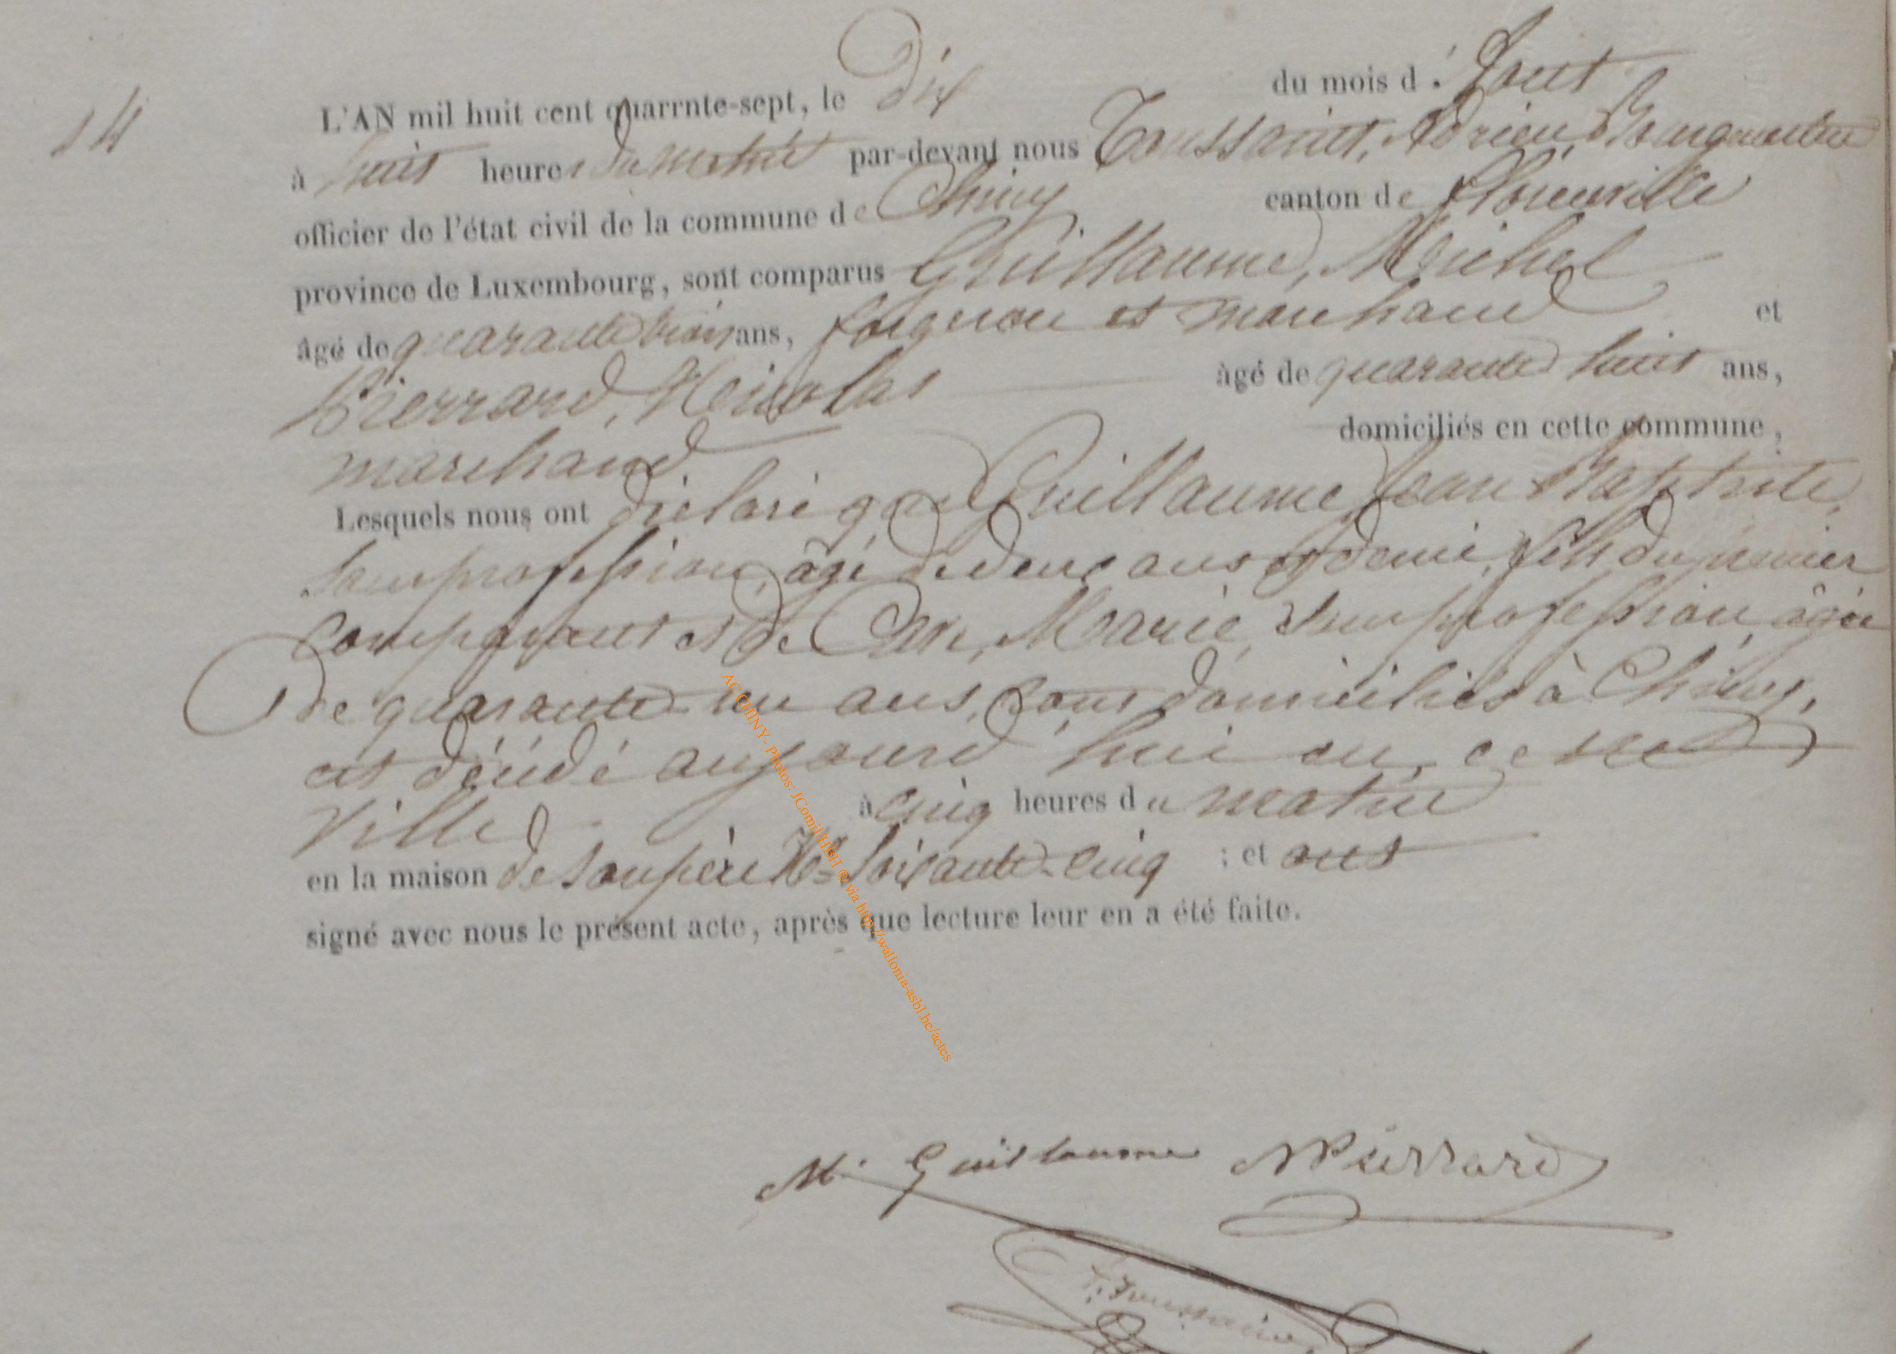 14
L'AN mil huit cent quarrnte-sept, le Dix du mois d'Aout
à huit heures du matin par-devant nous Toussaint, Adrien, Bourgmestre
officier de l'état civil de la commune de Chiny canton de Florenville
province de Luxembourg, sont comparus Guillaume, Michel
âgé de quarante trois ans, forgeron et marchand et
Pierrard, Nicolas âgé de quarante huit ans,
marchand domiciliés en cette commune,
Lesquels nous ont déclaré que Guillaume Jean Baptiste,
sans profession, âgé de deux ans et demi, fils du premier
comparant et de Marie, sans profession, âgée
de quarante un ans, tous domiciliés à Chiny,
est décédé aujourd'hui en cette
ville à cinq heures du matin
en la maison de son père No soixante-cinq ; et ont
signé avec nous le présent acte, après que lecture leur en a été faite.
M. Guillaume NPierrard
A. Toussaint